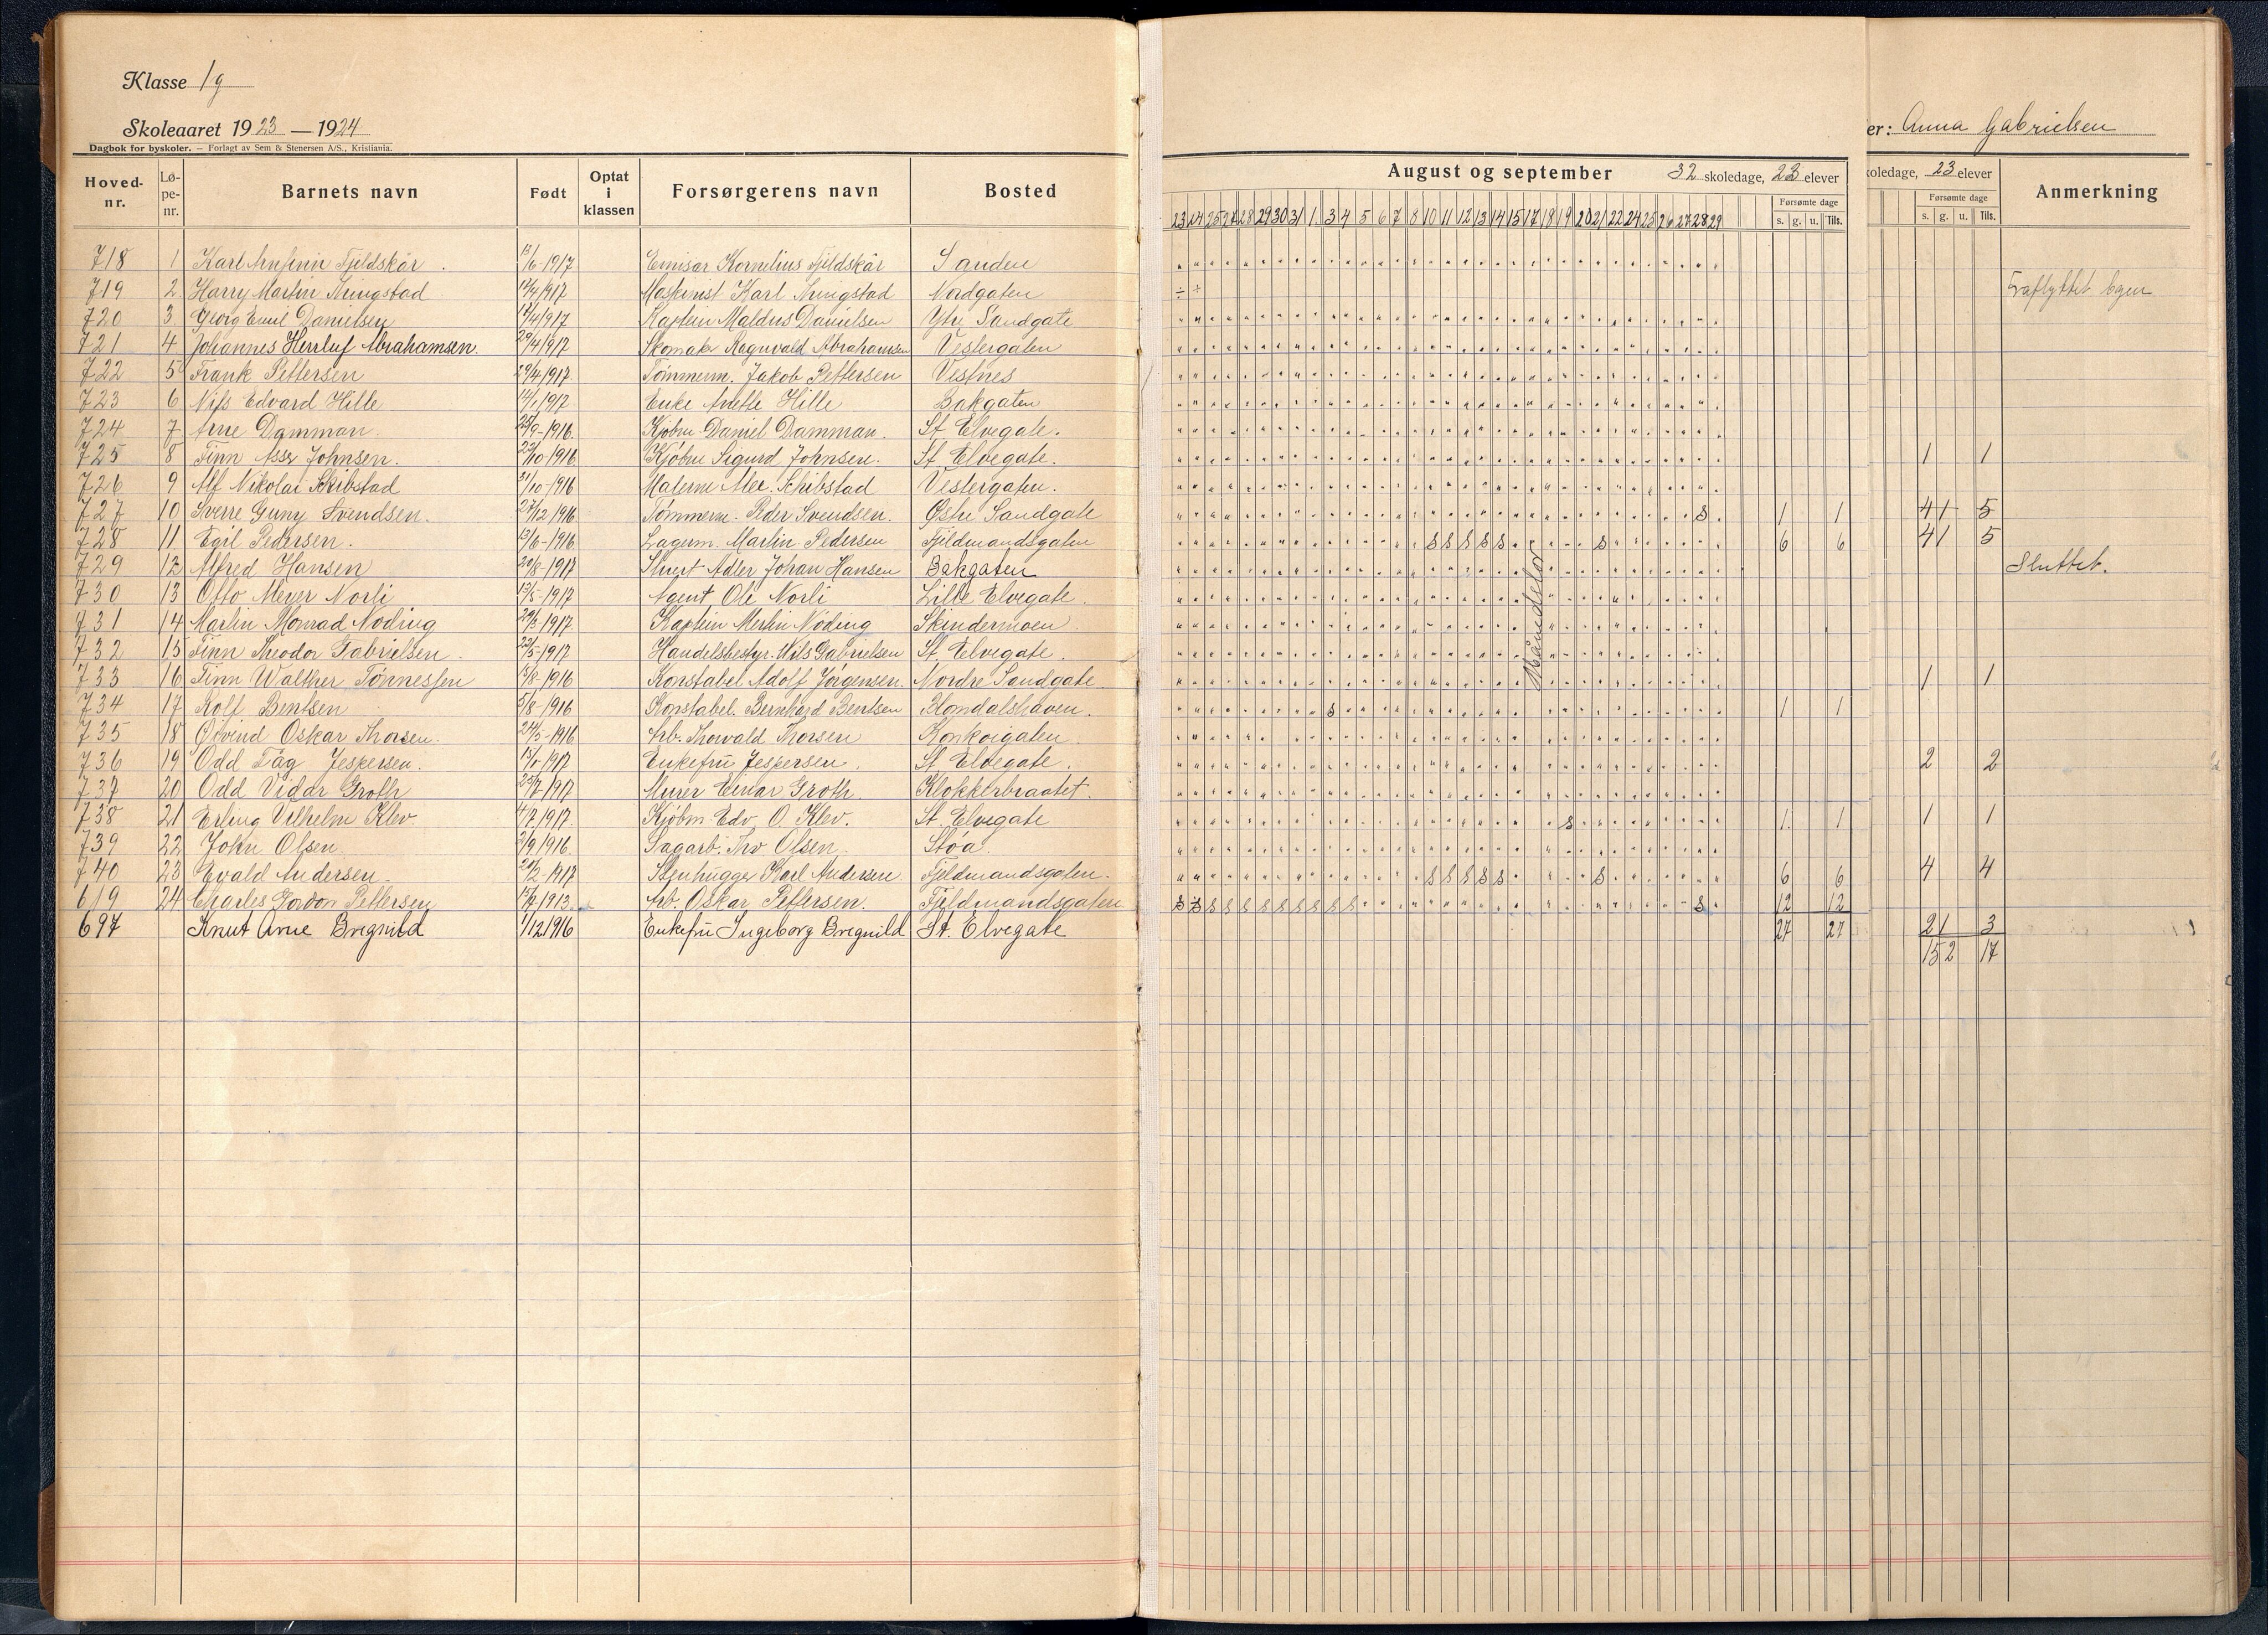 Klasse 1g
Skoleaaret 1923 — 1924
Dagbok for byskoler. — Forlagt av Sem & Stenersen A/S., Kristiania.
er: Anna Gabrielsen
Hoved-nr. Lø-pe-nr. Barnets navn Født Optat i klassen Forsørgerens navn Bosted
August og september 32 skoledage, 23 elever
Forsømte dage
s. g. u. Tils.
23 24 25 27 28 29 30 31 1 3 4 5 6 7 8 10 11 12 13 14 15 17 18 19 20 21 22 24 25 26 27 28 29
koledage, 23 elever
Forsømte dage
s. g. u. Tils.
Anmerkning
718 1 Karl Arnfinn Fjeldskår 13/6-1917 Emisær Kornelius Fjeldskår Sanden
719 2 Harry Martin 12/4 1917 Maskinist Karl Nordgaten Fraflyttet byen
720 3 Georg Emil Danielsen 17/4 1917 Kaptein Danielsen Ytre Sandgate
721 4 Johannes Herrluf Abrahamsen. 29/4 1917 Skomaker Ragnvald Abrahamsen Vestergaten
722 5 Frank Pettersen 29/4 1917 Tømmerm. Jakob Pettersen Vesfnes
723 6 Nils Edvard Hille 14/1 1917 Enke Anette Hille Bakgaten
724 7 Arne Damman. 25/9-1916. Kjøbm Daniel Damman. St Elvegate.
725 8 Finn Johnsen. 22/10-1916 Kjøbm Sigurd Johnsen. St Elvegate. 1 1
726 9 Alf Nikolai Skibstad 31/10-1916 Malerm Alex. Schibstad Vestergaten.
727 10 Sverre Guny Svendsen. 27/12 1916 Tømmerm. Peder Svendsen. Østre Sandgate s 1 1 4 1 5
728 11 Egil Pedersen. 13/6-1916 Lagerm. Martin Pedersen Fjeldmandsgaten s s s s s s 6 6 4 1 5
729 12 Alfred Hansen 20/8-1917 Adler Johan Hansen Bakgaten Sluttet.
730 13 Otto Meyer Norli 13/5-1917 Agent Ole Norli Lille Elvegate.
731 14 Martin Monrad Nøding 29/3 1917 Kaptein Martin Nøding Skindermoen
732 15 Finn Theodor Gabrielsen. 22/5-1917 Handelsbestyr. Nils Gabrielsen St. Elvegate.
Månedslov
733 16 Finn Walther Tønnessen 15/8-1916 Konstabel Adolf Jørgensen. Nordre Sandgate 1 1
734 17 Rolf Bentsen 5/8-1916 Konstabel. Bernhard Bentsen Blomdalshaven. s 1 1
735 18 Øivind Oskar Thorsen. 24/5-1916 Arb. Thorvald Thorsen Konkoigaten
736 19 Odd Tåg Jespersen. 15/1-1917 Enkefru Jespersen. St Elvegate. 2 2
737 20 Odd Vidar Groth 25/7-1917 Murer Einar Groth. Klokkerbraatet.
738 21 Erling Vilhelm Klev. 4/2 1917 Kjøbm Edv. O. Klev. St. Elvegate s 1 1 1 1
739 22 John Olsen. 2/9 1916. Sagarb. Thv Olsen. Støa
740 23 Evald Andersen. 20/2-1917 Stenhugger Karl Andersen Fjeldmandsgaten. s s s s s s 6 6 4 4
619 24 Charles Gordon Pettersen 15/9-1913. Arb. Oskar Pettersen. Fjeldmandsgaten s s s s s s s s s s s s 12 12
697 Knut Arne Bregnild 1/12 1916 Enkefru Ingeborg Bregnild St. Elvegate 27 27 2 1 3
15 2 17